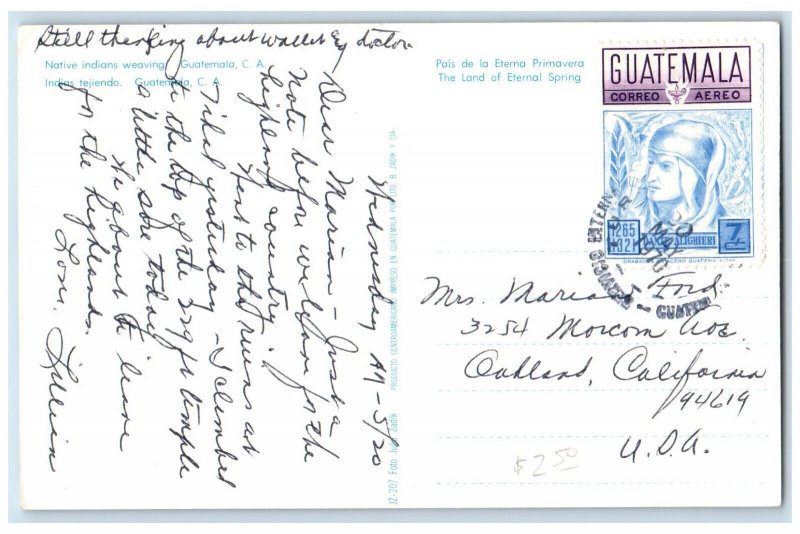 Still thinking about wallet by doctor.
Native indians weaving. Guatemala, C. A.
Indias tejiendo. Guatemala, C. A.
Wednesday AM - 5/20
Dear Marian - Just a
note before we leave for the
highland country.
Went to the ruins at
Tikal yesterday - I climbed
to the top of the 229 ft temple
a little sore today.
We're about to leave
for the highlands.
Love, Lillian
JZ-207 Foto Julio Zadik
PRODUCTO CENTROAMERICANO IMPRESO EN GUATEMALA POR LITO. B. ZADIK Y CIA
País de la Eterna Primavera
The Land of Eternal Spring
GUATEMALA
CORREO AEREO
1265
1321
DANTE ALIGHIERI
7
SERVICIO EXTERN
20
MAY
GUATEM
Mrs. Marian Ford
3254 Morcom Ave.
Oakland, California
94619
U.S.A.
$2.50